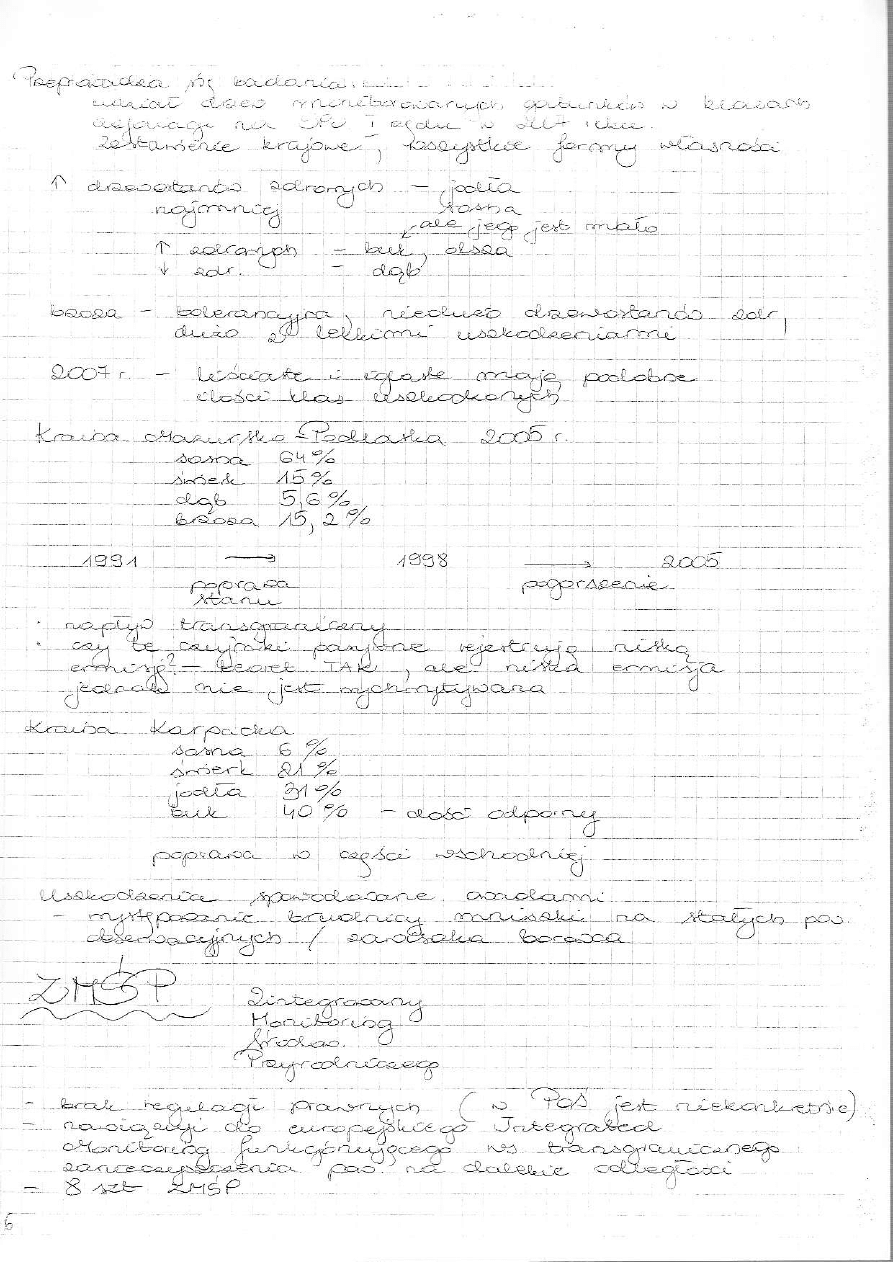 Przeprowadza się badania
udział drzew monitorowanych gatunków w klasach
defoliacji na SPO I rzędu w 2007 roku.
Zestawienie krajowe, wszystkie formy własności
↑ drzewostanów zdrowych - jodła
najmniej sosna
ale jego jest mało
↑ zdrowych - buk, olsza
↓ zdr. - dąb
brzoza - tolerancyjna, niedużo drzewostanów zdr,
dużo z lekkimi uszkodzeniami
2007 r. - liściaste i iglaste mają podobne
ilości klas uszkodzonych
Kraina Mazursko-Podlaska 2005 r.
sosna 64%
świerk 15%
dąb 5,6%
brzoza 15,2%
1991 → 1998 → 2005
poprawa pogorszenie
stanu
· napływ transgraniczny
· czy te czujniki pasywne rejestrują niską
emisję? - teoret TAK, ale niska emisja
jednak nie jest wychwytywana
Kraina Karpacka
sosna 6%
świerk 21%
jodła 31%
buk 40% - dość odporny
poprawa w części wschodniej
Uszkodzenia spowodowane owadami
- występowanie brudnicy mniszki na stałych pow.
obserwacyjnych / zawisaka borowca
ZMŚP
Zintegrowany
Monitoring
Środow.
Przyrodniczego
- brak regulacji prawnych (w POŚ jest niekonkretnie)
- nawiązuje do europejskiego Integrated
Monitoring funkcjonującego ws transgranicznego
zanieczyszczenia pow. na dalekie odległości
- 8 szt ZMŚP
6